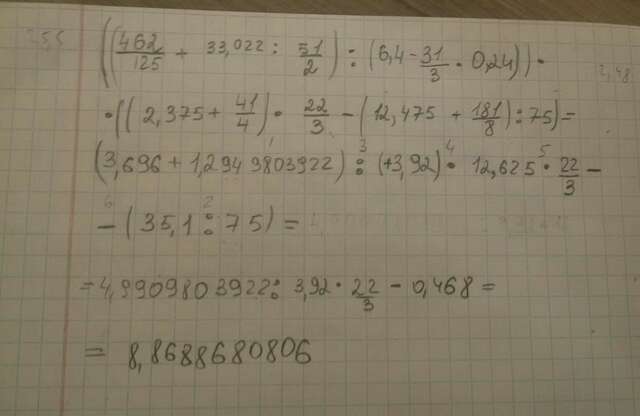 ((462/125 + 33,022 : 51/2) : (6,4 - 31/3 · 0,24)) ·
· ((2,375 + 41/4) · 22/3 - (12,475 + 181/8) : 75) =
(3,696 + 1,2949803922) :³ (+3,92) ·⁴ 12,625 ·⁵ 22/3 -
-⁶ (35,1 :² 75) =
= 4,9909803922 : 3,92 · 22/3 - 0,468 =
= 8,8688680806